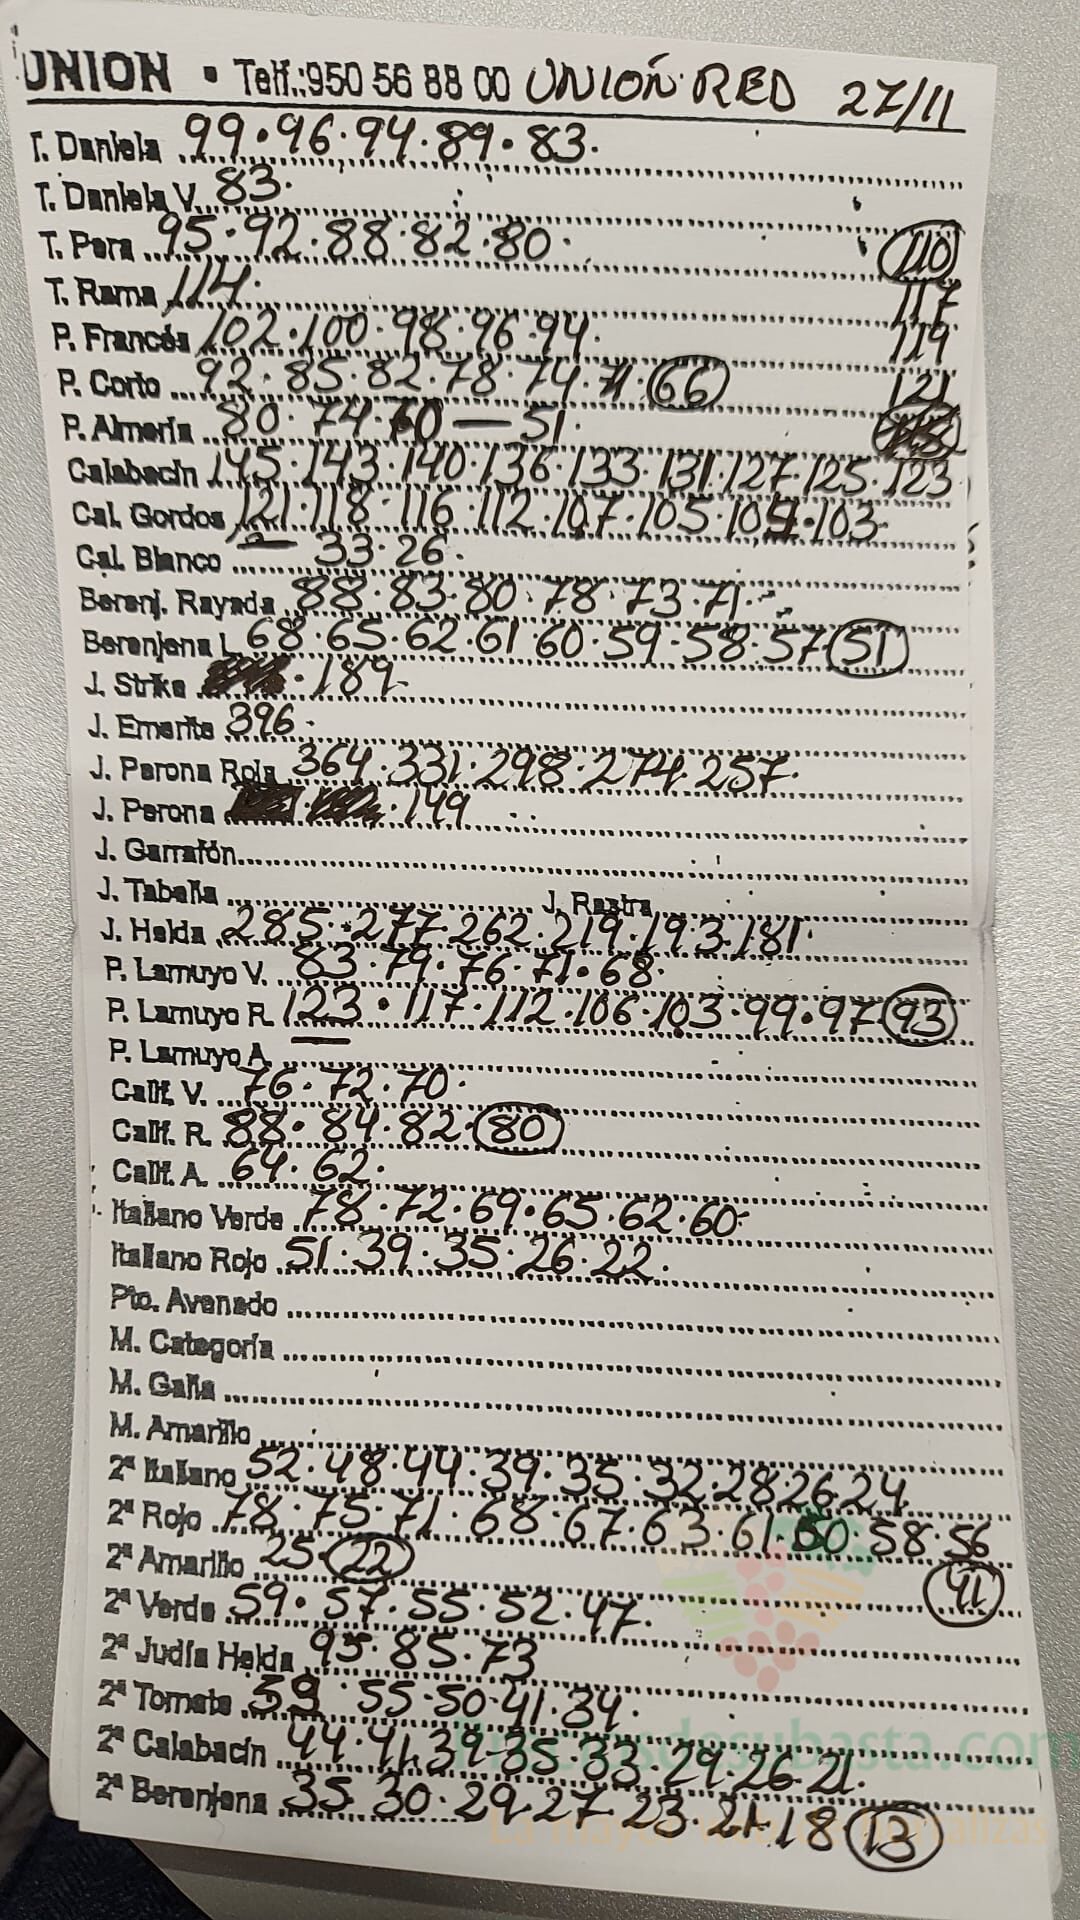 UNION • Telf.:950 56 88 00 UNIÓN RED 27/11
T. Daniela 99·96·94·89·83·
T. Daniela V. 83·
T. Pera 95·92·88·82·80· 110
T. Rama 114· 117
P. Francés 102·100·98·96·94· 119
P. Corto 92·85·82·78·74·71·66 121
P. Almería 80·74·60—51·
Calabacín 145·143·140·136·133·131·127·125·123
Cal. Gordos 121·118·116·112·107·105·104·103
Cal. Blanco — 33·26·
Berenj. Rayada 88·83·80·78·73·71·
Berenjena L. 68·65·62·61·60·59·58·57·51
J. Strike 189·
J. Emerite 396·
J. Perona Roja 364·331·298·274·257·
J. Perona 149
J. Garrafón
J. Tabella J. Rastra
J. Helda 285·277·262·219·193·181·
P. Lamuyo V. 83·79·76·71·68·
P. Lamuyo R. 123·117·112·106·103·99·97·93
P. Lamuyo A.
Calif. V. 76·72·70·
Calif. R. 88·84·82·80
Calif. A. 64·62·
Italiano Verde 78·72·69·65·62·60·
Italiano Rojo 51·39·35·26·22·
Pto. Avenado
M. Categoría
M. Galia
M. Amarillo
2ª Italiano 52·48·44·39·35·32·28·26·24
2ª Rojo 78·75·71·68·67·63·61·60·58·56
2ª Amarillo 25·22 41
2ª Verde 59·57·55·52·47·
2ª Judía Helda 95·85·73
2ª Tomate 59·55·50·41·34·
2ª Calabacín 44·41·39·35·33·29·26·21·
2ª Berenjena 35·30·29·27·23·21·18·13